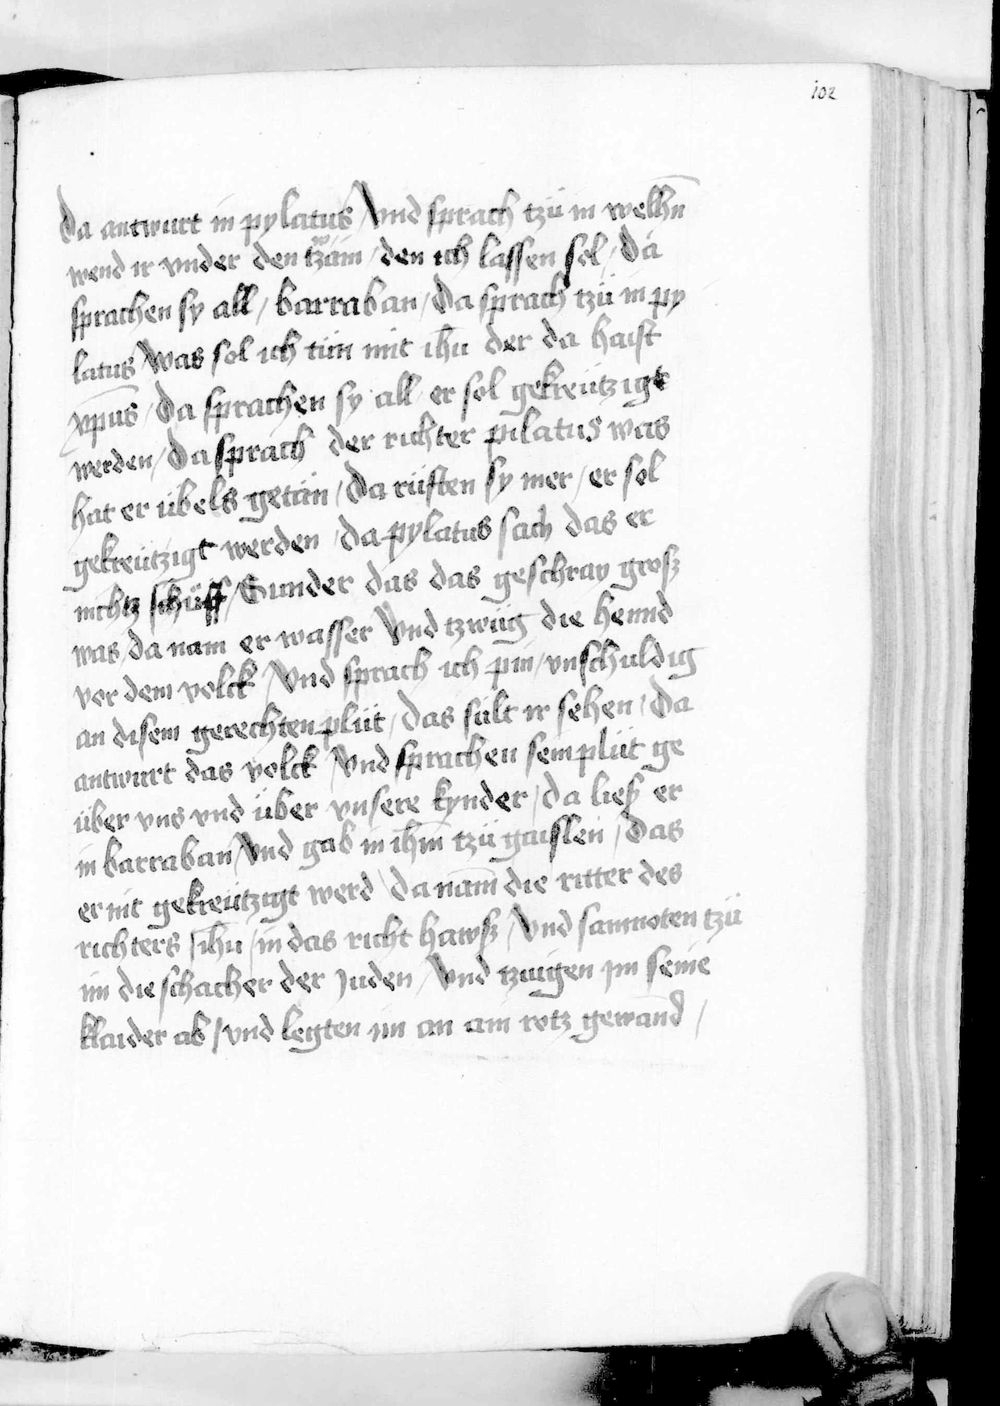 102
da antwurt in pylatus / Vnd sprach tzü in welhn̄
wend ir vnder den tzwain / den ich lassen sol / da
sprachen sy all / barraban / da sprach tzü in py
latus / Was sol ich tün mit ihū der da haist
xp̄us / da sprachen sy all / er sol gekreützigt
werden / da sprach der richter pilatus was
hat er übels getän / da rüften sy mer / er sol
gekreützigt werden / da pylatus sach das er
nichtz schüff / Sunder das das geschray grosz
was / da nam er wasser Vnd tzwüg die hennd
vor dem volck / Vnd sprach ich pin / vnschuldig
an disem gerechten plüt / das sült ir sehen / da
antwurt das volck / Vnd sprachen sein plüt ge
über vns vnd über vnsere kynder / da liesz er
in barraban / Vnd gab in ihm̄ tzü gaislen / das
er nit gekreützigt werd / da nam̄ die ritter des
richters / ihū / in das richt hawsz / Vnd samnoten tzü
im die schacher der Juden / Vnd tzugen jm seine
klaider ab / vnd legten im an ain rotz gewand /